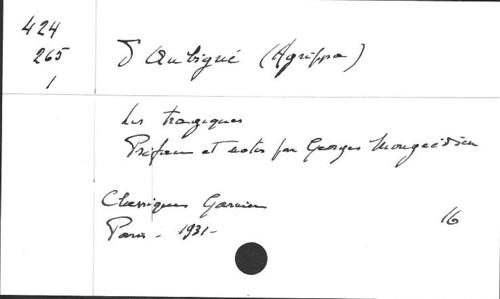 424
265
1
d'Aubigné (Agrippa)
Les tragiques
Préface et notes par Georges Mongrédien
Classiques Garnier
16
Paris - 1931 -